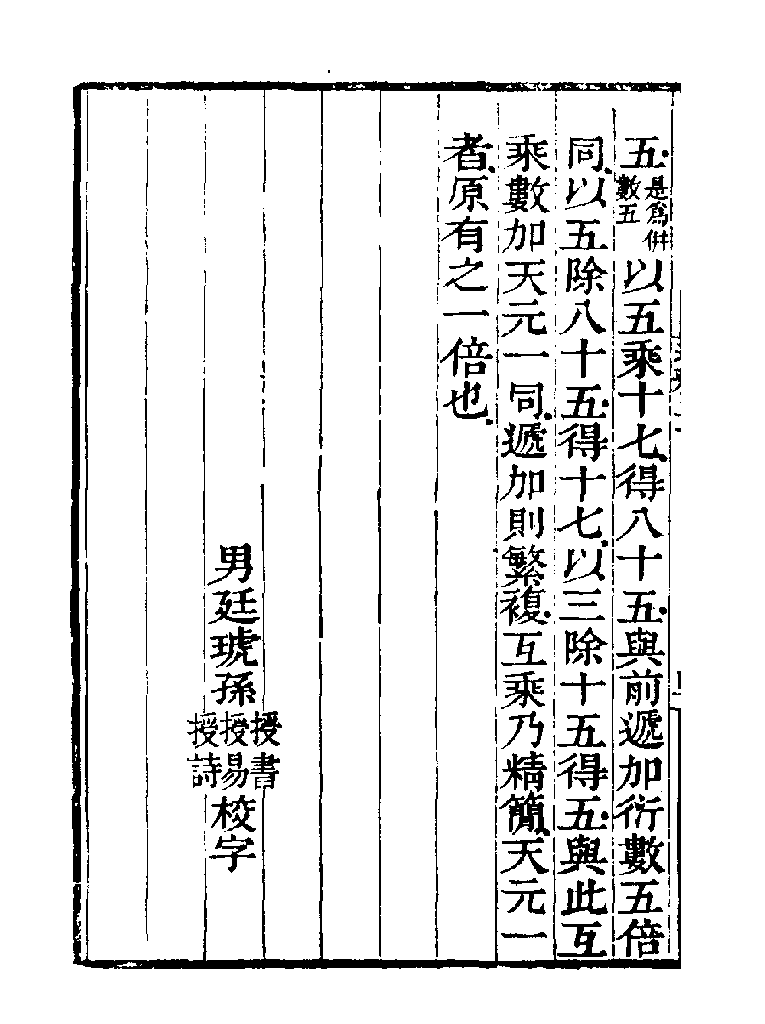 五是爲併數五以五乘十七得八十五與前遞加衍數五倍
同以五除八十五得十七以三除十五得五與此互
乘數加天元一同遞加則繁複互乘乃精簡天元一
者原有之一倍也
男廷琥孫授書授易授詩校字